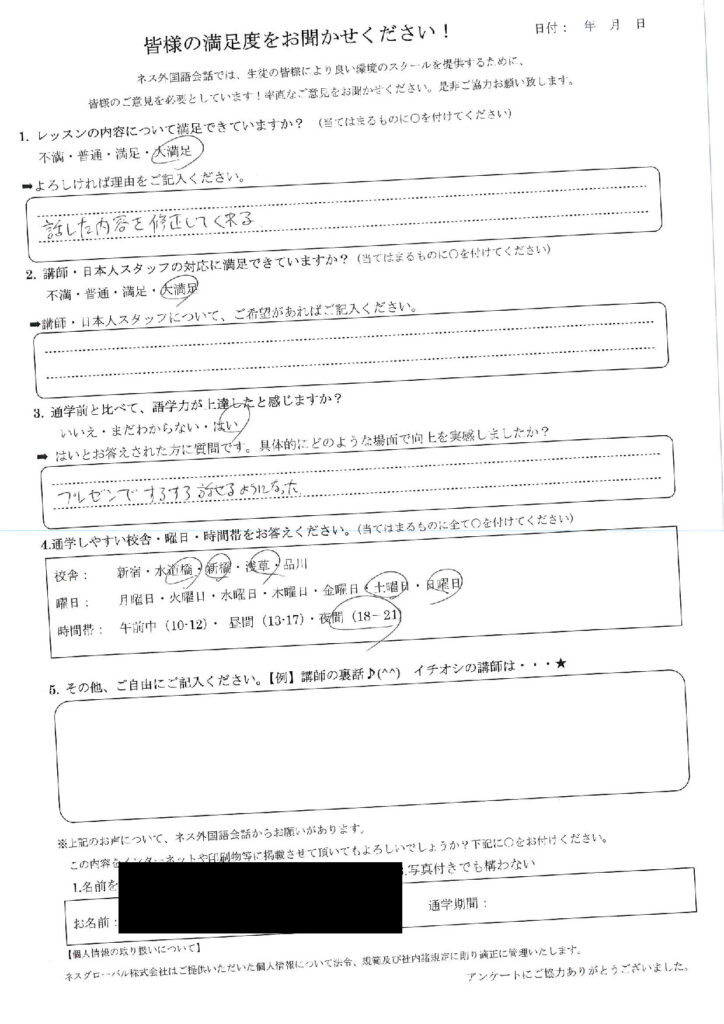 皆様の満足度をお聞かせください！
日付： 年 月 日
ネス外国語会話では、生徒の皆様により良い環境のスクールを提供するために、
皆様のご意見を必要としています！率直なご意見をお聞かせください。是非ご協力お願い致します。
1. レッスンの内容について満足できていますか？ （当てはまるものに〇を付けてください）
不満・普通・満足・大満足
➡よろしければ理由をご記入ください。
話した内容を修正してくれる
2. 講師・日本人スタッフの対応に満足できていますか？（当てはまるものに〇を付けてください）
不満・普通・満足・大満足
➡講師・日本人スタッフについて、ご希望があればご記入ください。
3. 通学前と比べて、語学力が上達したと感じますか？
いいえ・まだわからない・はい
➡ はいとお答えされた方に質問です。具体的にどのような場面で向上を実感しましたか？
プレゼンでするする話せるようになった
4.通学しやすい校舎・曜日・時間帯をお答えください。（当てはまるものに全て〇を付けてください）
校舎： 新宿・水道橋・新橋・浅草・品川
曜日： 月曜日・火曜日・水曜日・木曜日・金曜日・土曜日・日曜日
時間帯： 午前中（10-12）・ 昼間（13-17）・夜間（18－21）
5. その他、ご自由にご記入ください。【例】講師の裏話♪(^^) イチオシの講師は・・・★
※上記のお声について、ネス外国語会話からお願いがあります。
この内容をインターネットや印刷物等に掲載させて頂いてもよろしいでしょうか？下記に〇をお付けください。
1.名前を .写真付きでも構わない
お名前： 通学期間：
【個人情報の取り扱いについて】
ネスグローバル株式会社はご提供いただいた個人情報について法令、規範及び社内諸規定に則り適正に管理いたします。
アンケートにご協力ありがとうございました。